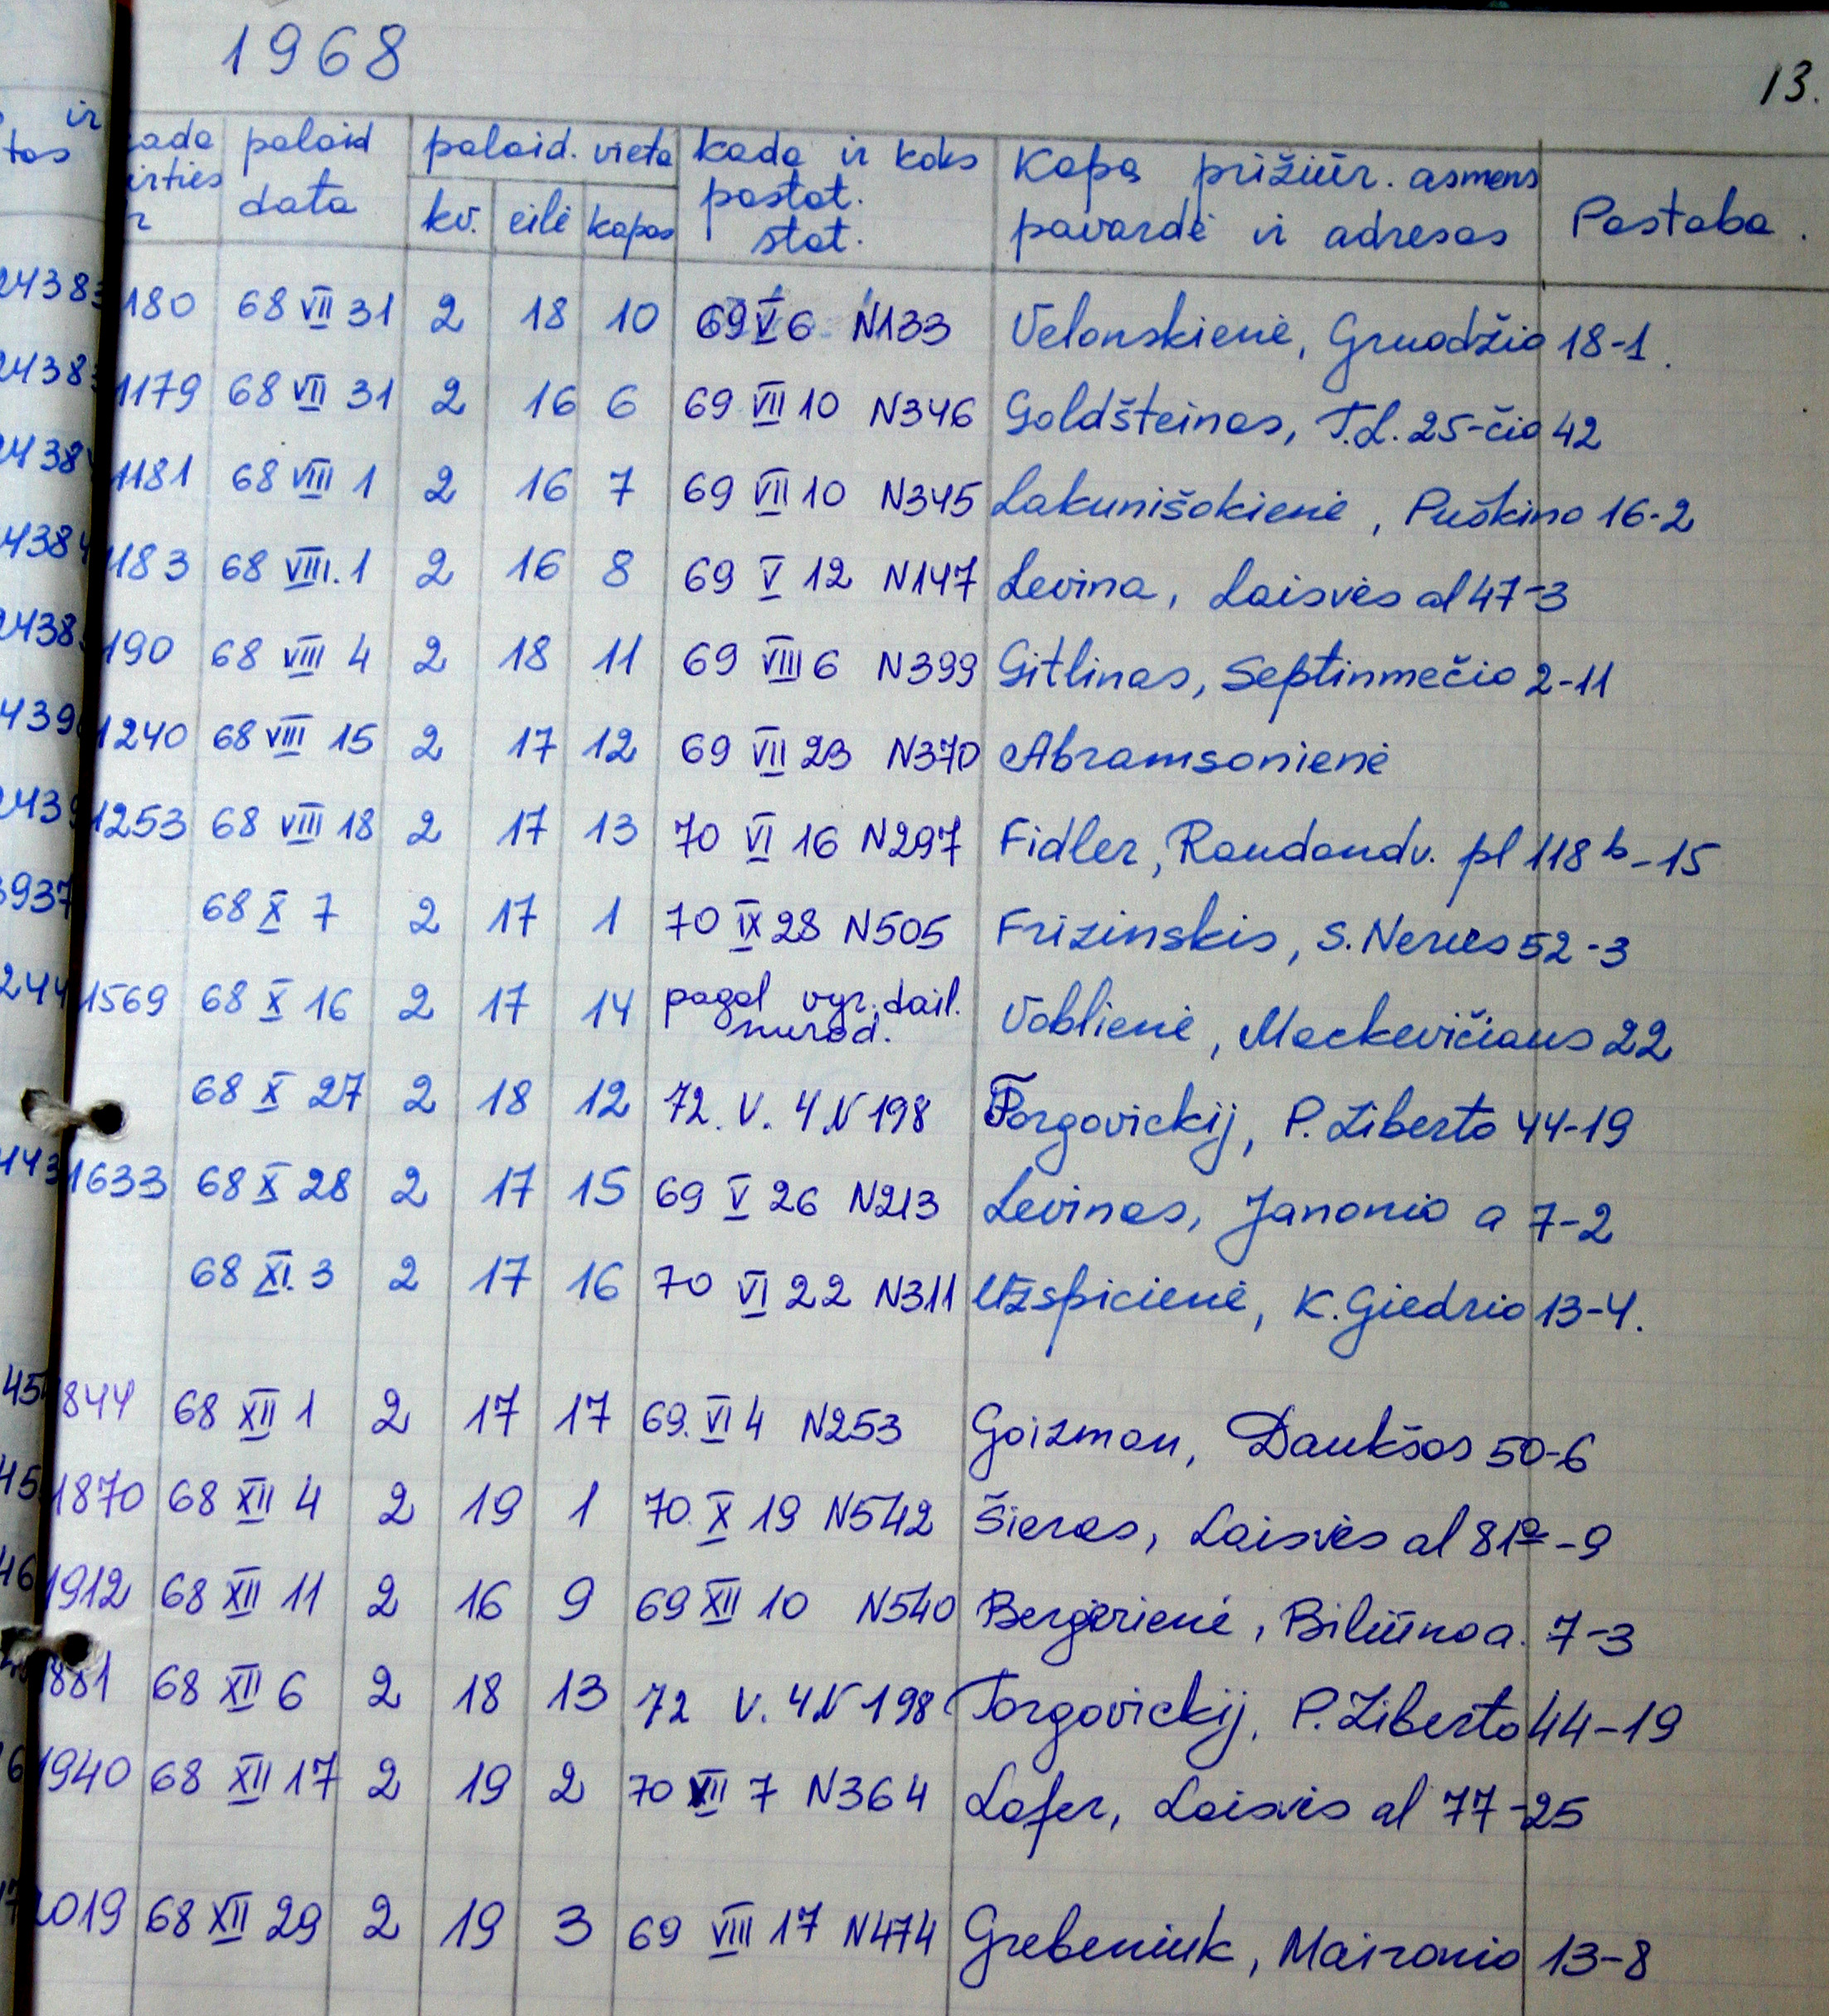 1968
13.
ir
tos
palaid data
palaid. vieta
kv. eilė kapas
kada ir koks pastat. stat.
Kapą prižiūr. asmens pavardė ir adresas
Pastaba.
180 68 VII 31 2 18 10 69 V 6 N133 Velonskienė, Gruodžio 18-1.
1179 68 VII 31 2 16 6 69 VII 10 N346 Goldšteinas, T.L. 25-čio 42
1181 68 VIII 1 2 16 7 69 VII 10 N345 Lakunišokienė, Puškino 16-2
1183 68 VIII. 1 2 16 8 69 V 12 N147 Levina, Laisvės al 47-3
190 68 VIII 4 2 18 11 69 VIII 6 N399 Gitlinas, Septinmečio 2-11
1240 68 VIII 15 2 17 12 69 VII 23 N370 Abramsonienė
1253 68 VIII 18 2 17 13 70 VI 16 N297 Fidler, Raudondv. pl 118 b-15
68 X 7 2 17 1 70 IX 28 N505 Frizinskis, S. Neries 52-3
1569 68 X 16 2 17 14 pagal vyr. dail. nurod. Voblienė, Mackevičiaus 22
68 X 27 2 18 12 72. V. 4 N 198 Torgovickij, P. Ziberto 44-19
1633 68 X 28 2 17 15 69 V 26 N213 Levinas, Janonio a 7-2
68 XI. 3 2 17 16 70 VI 22 N311 Uzspicienė, K. Giedrio 13-4.
844 68 XII 1 2 17 17 69. VI 4 N253 Goizman, Daukšos 50-6
1870 68 XII 4 2 19 1 70. X 19 N542 Šieras, Laisvės al 81a-9
1912 68 XII 11 2 16 9 69 XII 10 N540 Bergerienė, Biliūno a. 7-3
881 68 XII 6 2 18 13 72 V. 4 N 198 Torgovickij, P. Ziberto 44-19
1940 68 XII 17 2 19 2 70 VII 7 N364 Lafer, Laisvės al 77-25
2019 68 XII 29 2 19 3 69 VIII 17 N474 Grebeniuk, Maironio 13-8